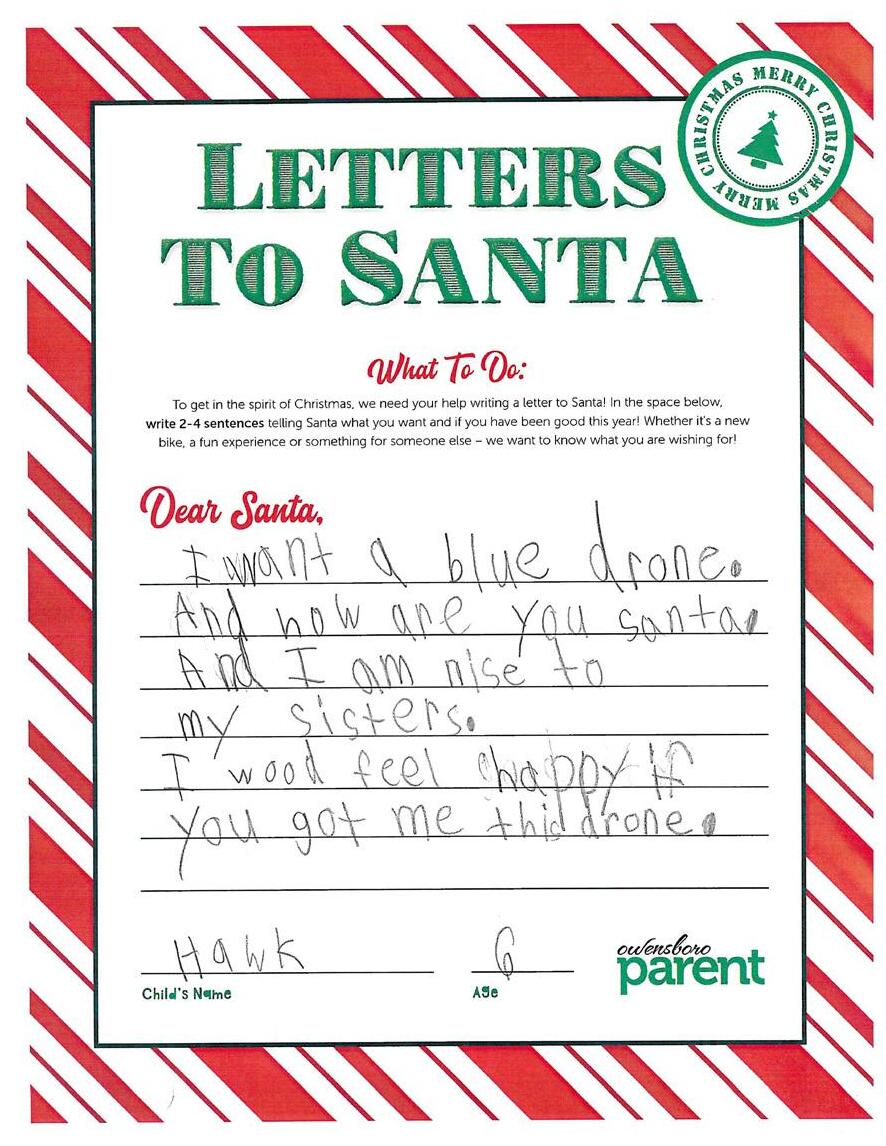 MERRY CHRISTMAS MERRY CHRISTMAS
LETTERS
TO SANTA
What To Do:
To get in the spirit of Christmas, we need your help writing a letter to Santa! In the space below,
write 2-4 sentences telling Santa what you want and if you have been good this year! Whether it's a new
bike, a fun experience or something for someone else – we want to know what you are wishing for!
Dear Santa,
I want a blue drone.
And how are you santa.
And I am nise to
my sisters.
I wood feel happy if
you got me this drone.
Hawk 6
Child's Name Age
owensboro
parent